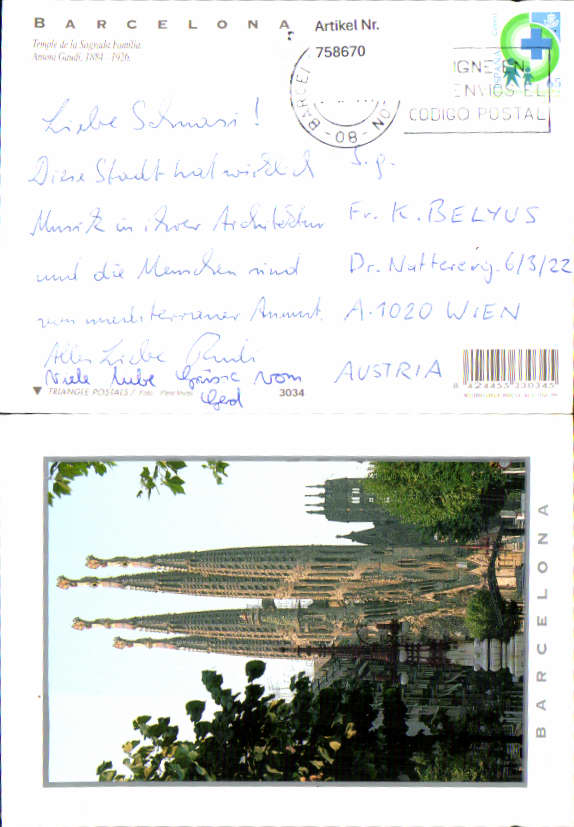 BARCELONA
Temple de la Sagrada Família.
Antoni Gaudí, 1884 - 1926.
Artikel Nr.
758670
ESPAÑA
65
BARCEL
-08-
ON
IGNE EN
ENVIOS EL
CODIGO POSTAL
Liebe Schnasi!
Diese Stadt hat wirklich
Musik in ihrer Architektur
und die Menschen sind
von mediterraner Anmut.
Alles Liebe Rudi
Viele liebe Grüsse vom
Gerd
S.g.
Fr. K. BELYUS
Dr. Natterergg. 6/3/22
A-1020 WIEN
AUSTRIA
▼ TRIANGLE POSTALS / Foto:
3034
8 424455 230345
BARCELONA